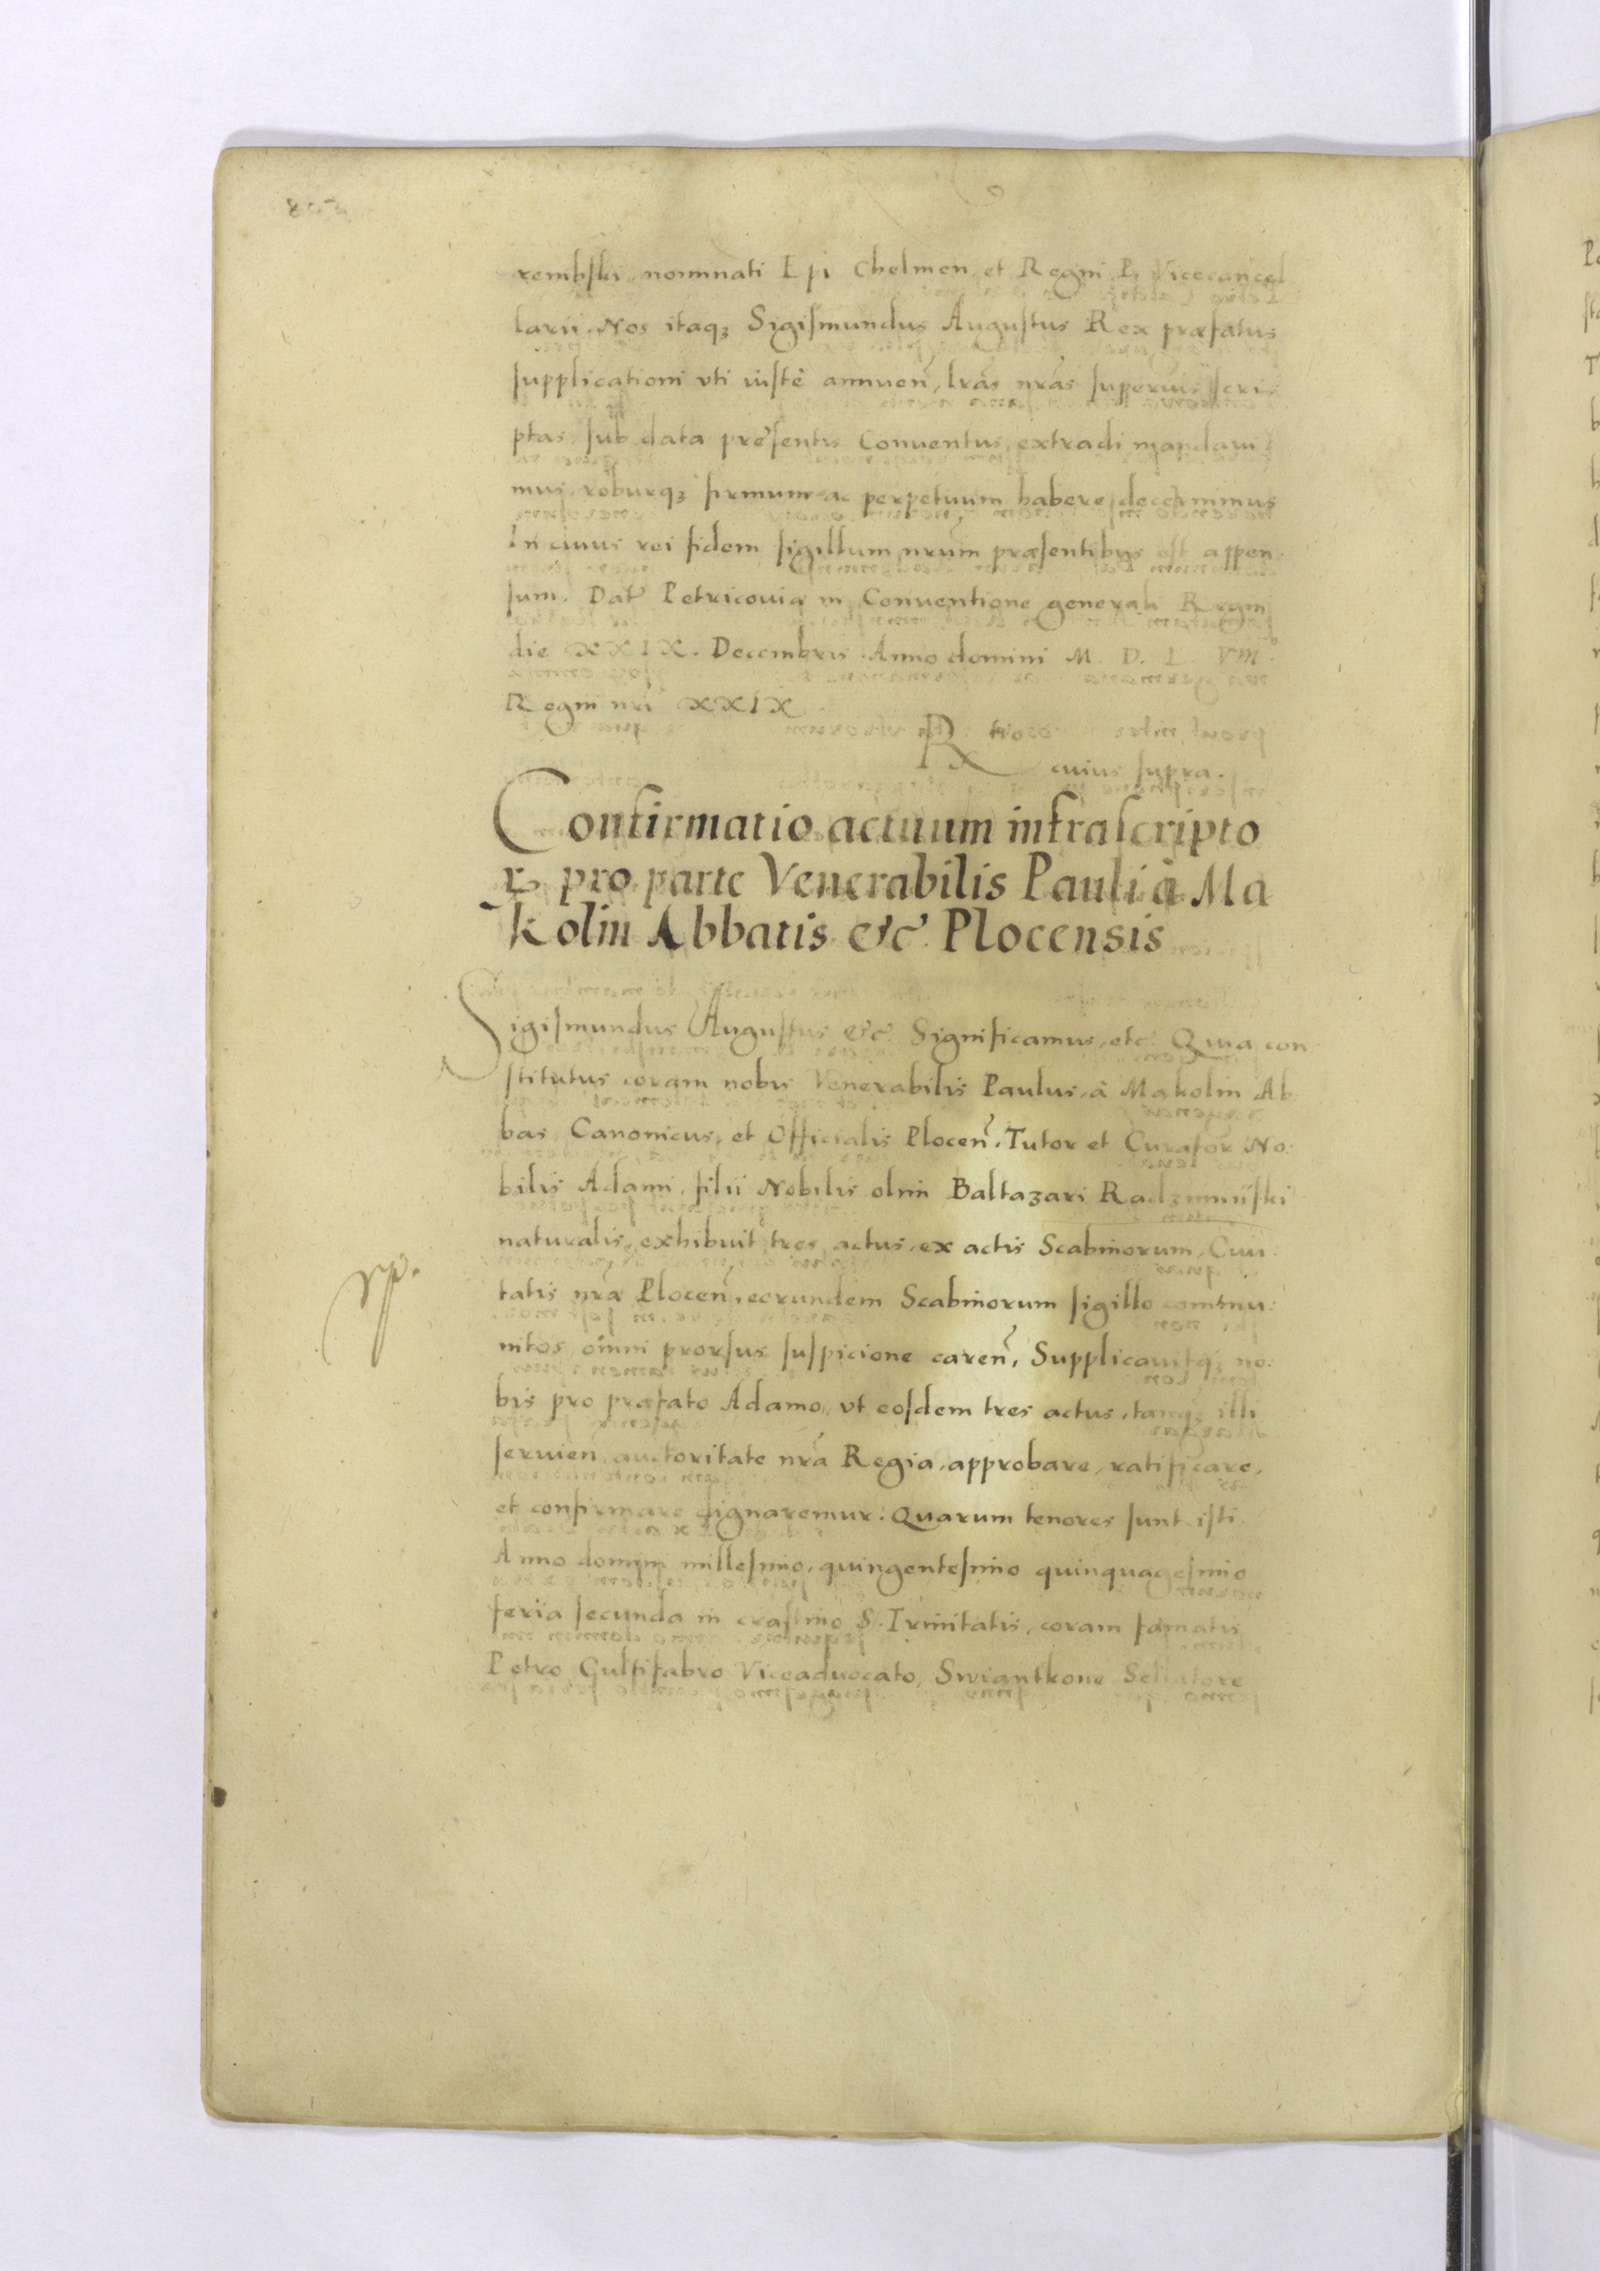 rembſki nominati Epi Chelmen et Regni P. Vicecancel
larii. Nos itaqȝ Sigiſmundus Auguſtus Rex præfatus
ſupplicationi vti iuſtè annuen, lrãs nrãs ſuperius ſcri
ptas ſub data preſentis Conuentus extradi mandaui
mus roburqȝ firmum ac perpetuum habere decernimus
In cuius rei fidem ſigillum nrum præſentibus eſt appen
ſum. Dat Petricouiæ in Conuentione generali Regni
die XXIX. Decembris Anno domini M. D. L. VIII.
Regni nri XXIX
Rtio cuius ſupra.
Confirmatio actuum infraſcripto
ꝝ pro parte Venerabilis Pauli à Ma
kolin Abbatis &c Plocensis
Sigiſmundus Auguſtus &c Significamus, etc Quia con
ſtitutus coram nobis Venerabilis Paulus, à Makolin Ab
bas Canonicus, et Officialis Plocen, Tutor et Curator No:
bilis Adami, filii Nobilis olim Baltazari Radzimiiſki
naturalis, exhibuit tres actus, ex actis Scabinorum, Ciui:
tatis nrã Plocen, eorundem Scabinorum ſigillo commu:
nitos omni prorſus ſuſpicione caren, Supplicauitqȝ no:
bis pro præfato Adamo, vt eoſdem tres actus, tanqȝ illi
ſeruien, auctoritate nrã Regia, approbare, ratificare,
et confirmare dignaremur: Quarum tenores ſunt iſti.
Anno domini milleſimo, quingenteſimo quinquageſimo
feria ſecunda in craſtino S. Trinitatis, coram famatis
Petro Cultifabro Viceaduocato, Swiantkone Sellatore